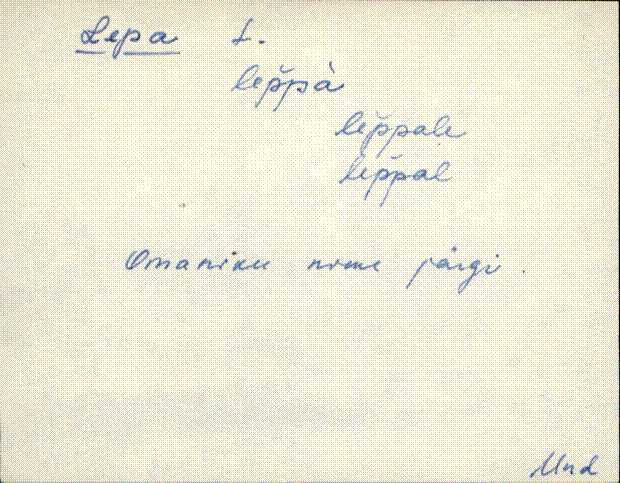 Lepa t.
lep̆p̆à
lep̆p̆ale
lep̆p̆al
Omaniku nime järgi.
Mnd